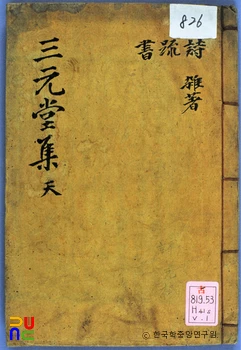 826
詩疏書
雜著
三元堂集 天
819.53
V-1
한국학중앙연구원